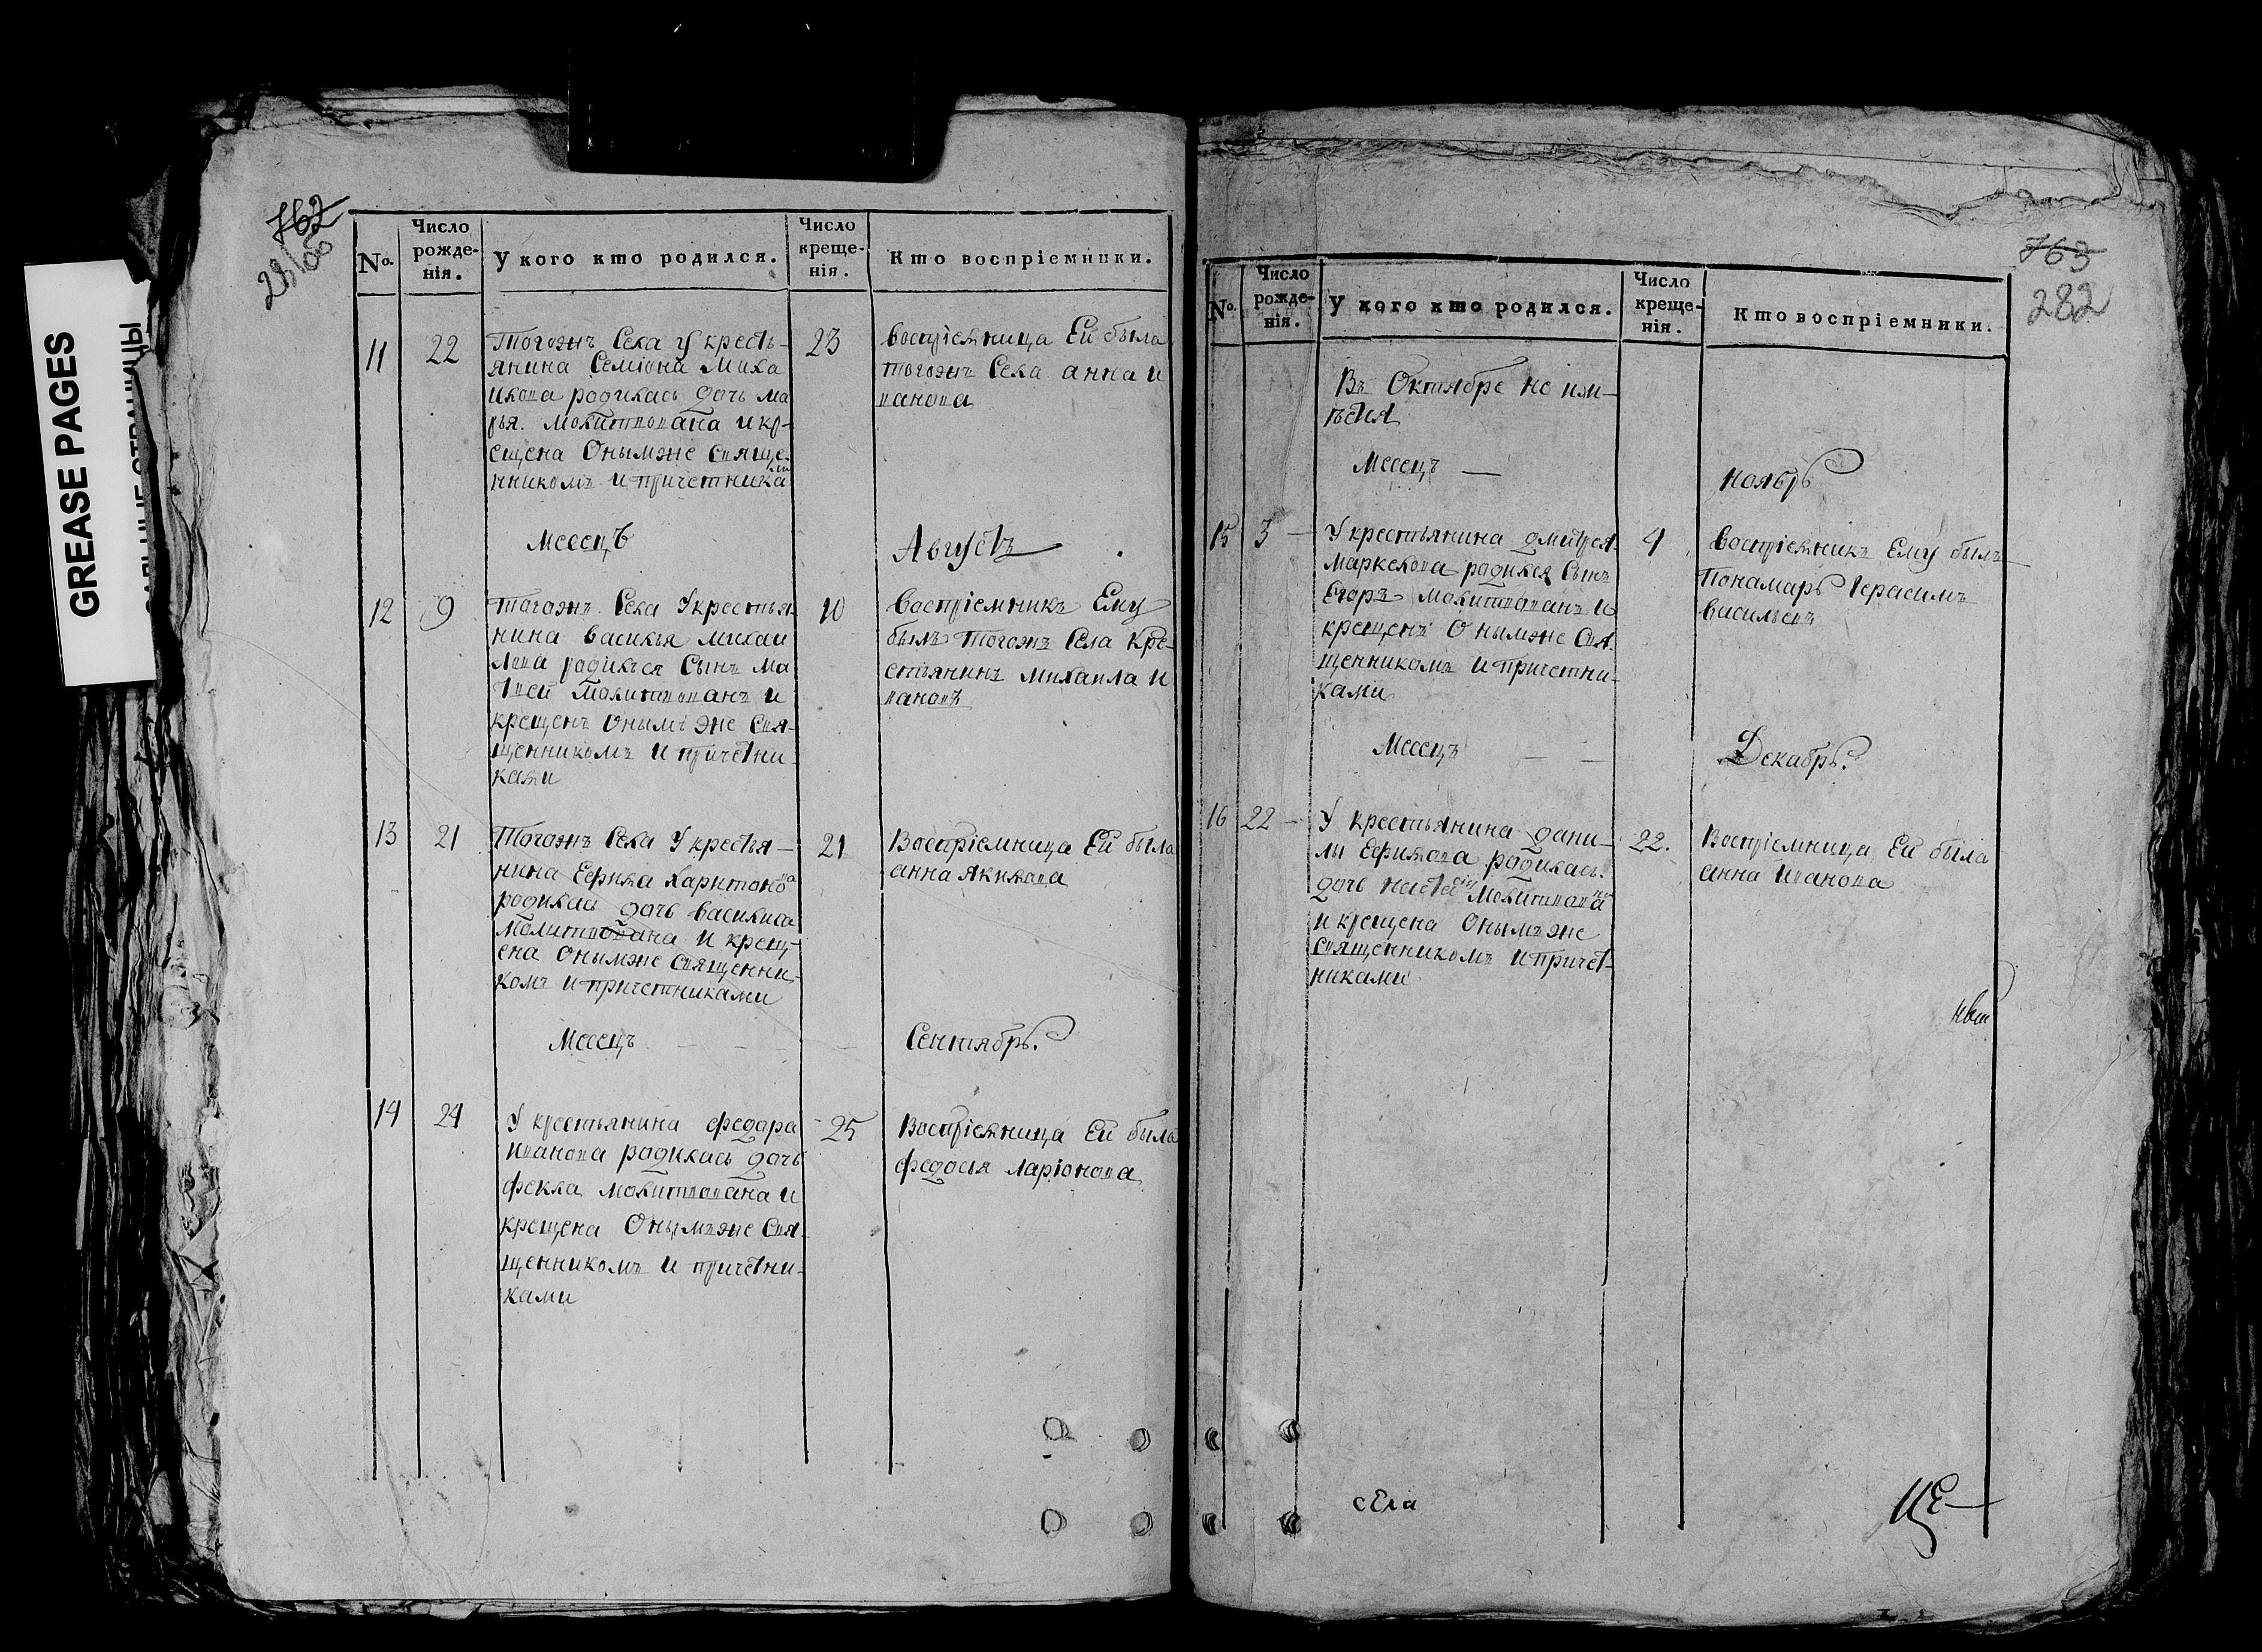 GREASE PAGES
762
281об
№
Число рожденія.
У кого кто родился.
Число крещенія.
Кто воспріемники.
11
22
Тогожъ Села у кресть-
янина Семіона Миха
илова родилась дочь ма
рья. Молитвована и кр-
ещена Онымже Свяще-
нникомъ и причетниками
23
воспріемница Ей была
тогожъ Села анна и
ванова
Месецъ
Августъ
12
9
тогожъ Села У крестья
нина василья михаи
лова родился Сынъ ма
твей молитвованъ и
крещенъ онымъ же Свя-
щенникомъ и причетни-
ками
10
воспріемникъ Ему
былъ тогожъ Села кре-
стьянинъ михаила и
вановъ
13
21
Тогожъ Села У крестья-
нина Ефима харитонова
родилас дочь василиса
молитвована и крещ-
ена онымже Священни-
комъ и причетниками
21
Воспріемница Ей была
анна якимова
Месецъ
Сентябрь.
14
24
У крестьянина федора
иванова родилась дочь
фекла молитвована и
крещена Онымже Свя-
щенникомъ и причетни-
ками
25
Воспріемница Ей была
федосья ларіонова
763
282
№
Число рожденія.
У кого кто родился.
Число крещенія.
Кто воспріемники.
Въ Октябре не им-
ѣется
Месецъ
ноябрь
15
3
У крестьянина дмитрея
маркелова родился Сынъ
Егоръ молитвованъ и
крещенъ Онымже Свя-
щенникомъ и причетни-
ками
4
воспріемникъ Ему былъ
понамарь герасимъ
васильевъ
Месецъ
Декабрь.
16
22
У крестьянина дани-
лы Ефимова родилась
дочь молитвована
и крещена Онымъже
священникомъ и причет-
никами
22.
Воспріемница Ей была
анна иванова
сЕла